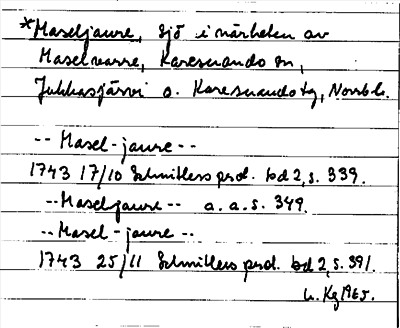 *Maseljaure, sjö i närheten av
Maselvarre, Karesuando sn,
Jukkasjärvi o. Karesuando tg, Norrb. l.
-- Masel-jaure --
1743 17/10 Schnitlers prot. bd 2, s. 339.
-- Maseljaure -- a.a.s. 349.
-- Masel-jaure --
1743 25/11 Schnitlers prot. bd 2, s. 391.
Kg 1965.